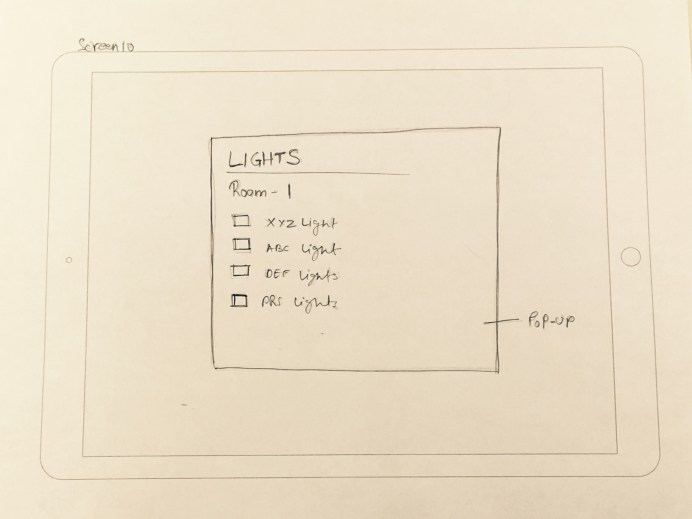 Screen 10
LIGHTS
Room - 1
XYZ Light
ABC Light
DEF Lights
PRS Lights
POP-UP